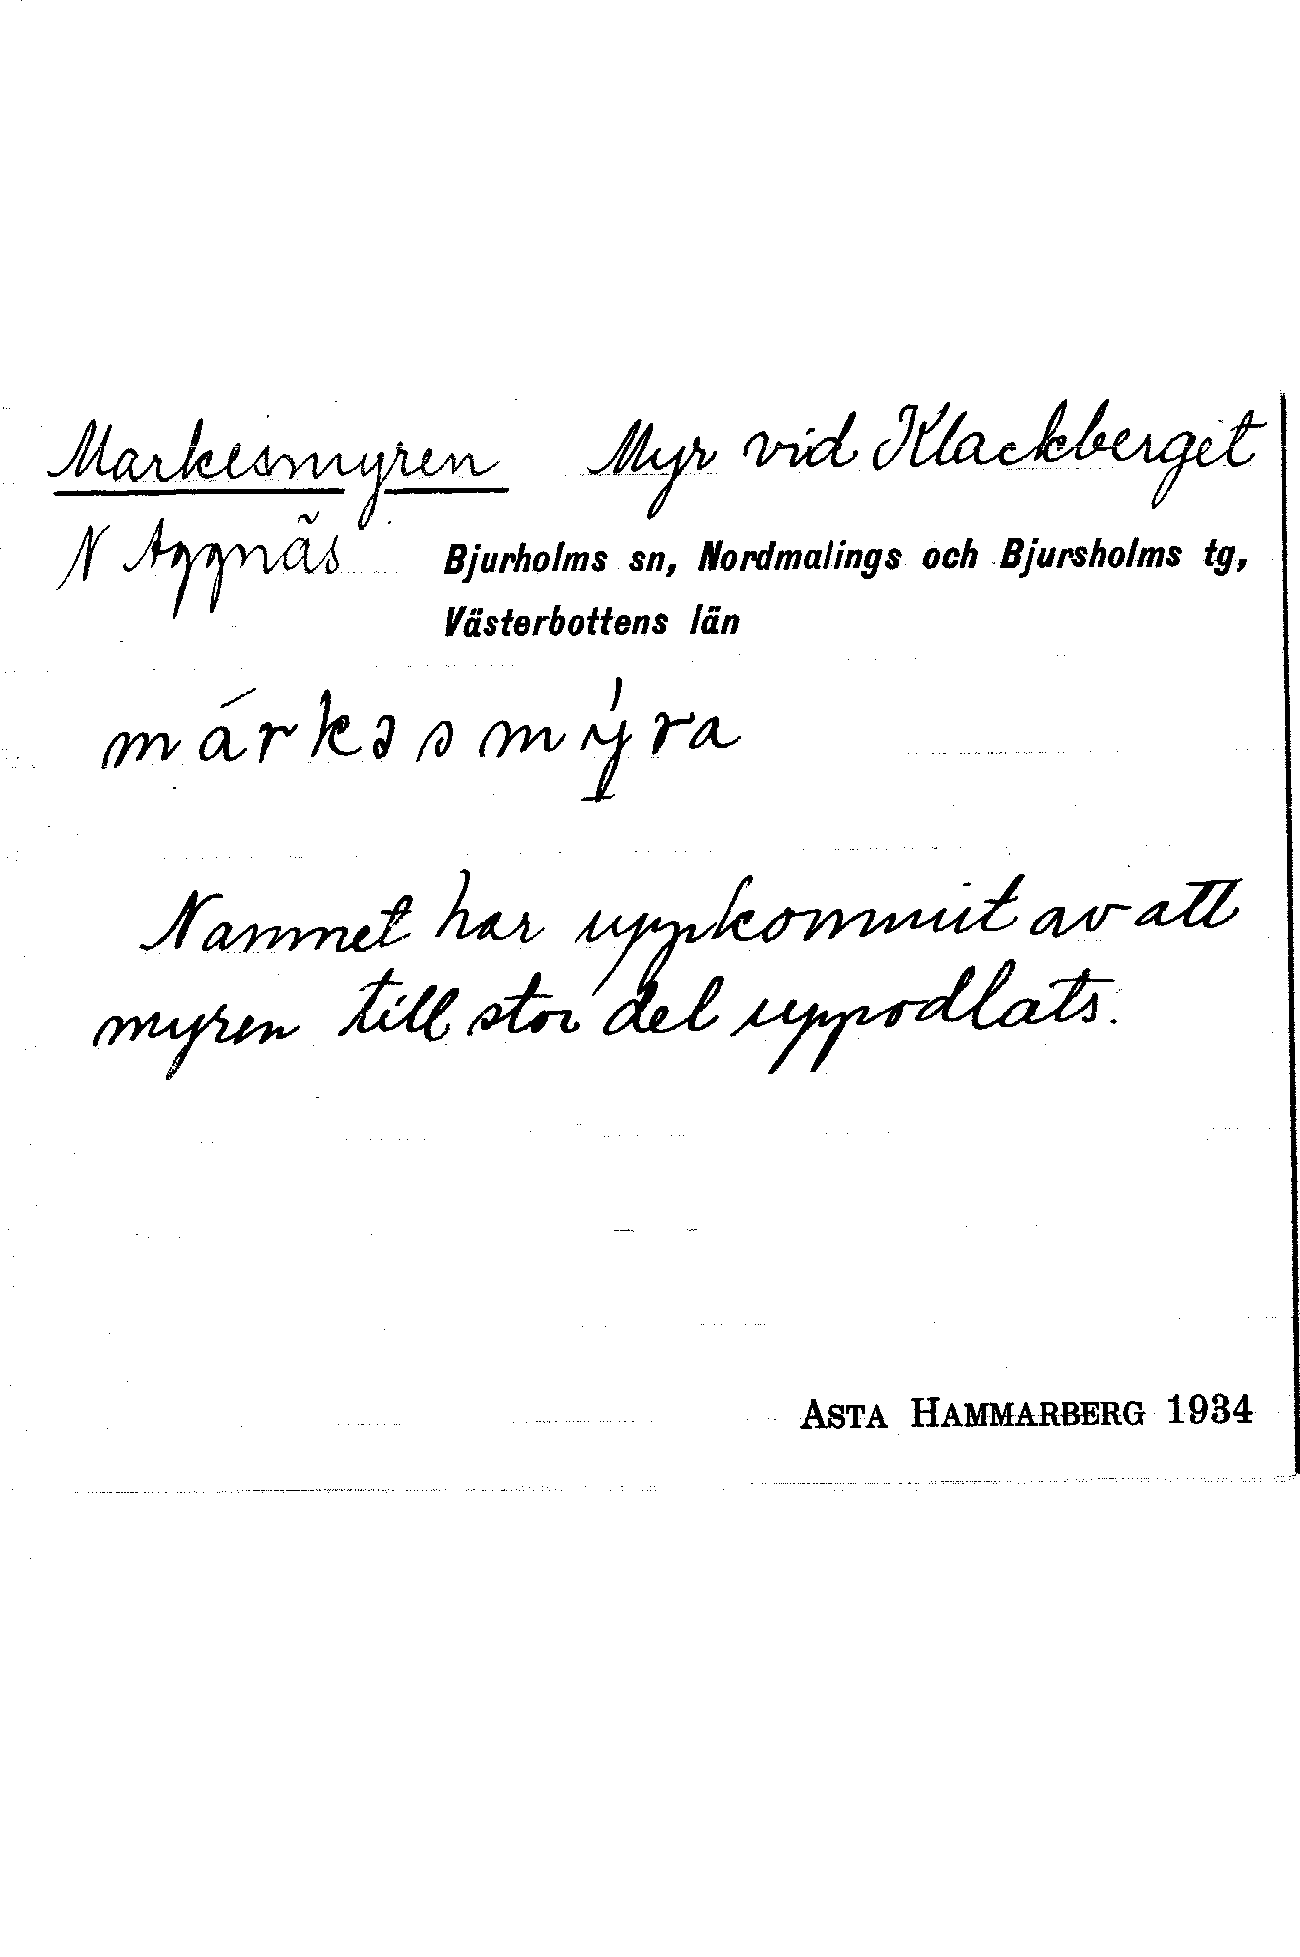 Markesmyren Myr vid Klackberget
N Aggnäs Bjurholms sn, Nordmalings och Bjursholms tg,
Västerbottens län
márkəsmý̲ra
Namnet har uppkommit av att
myren till stor del uppodlats.
ASTA HAMMARBERG 1934